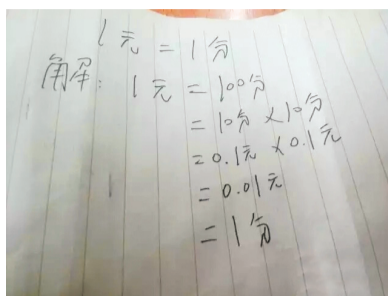 1元=1分
解: 1元=100分
=10分×10分
=0.1元×0.1元
=0.01元
=1分